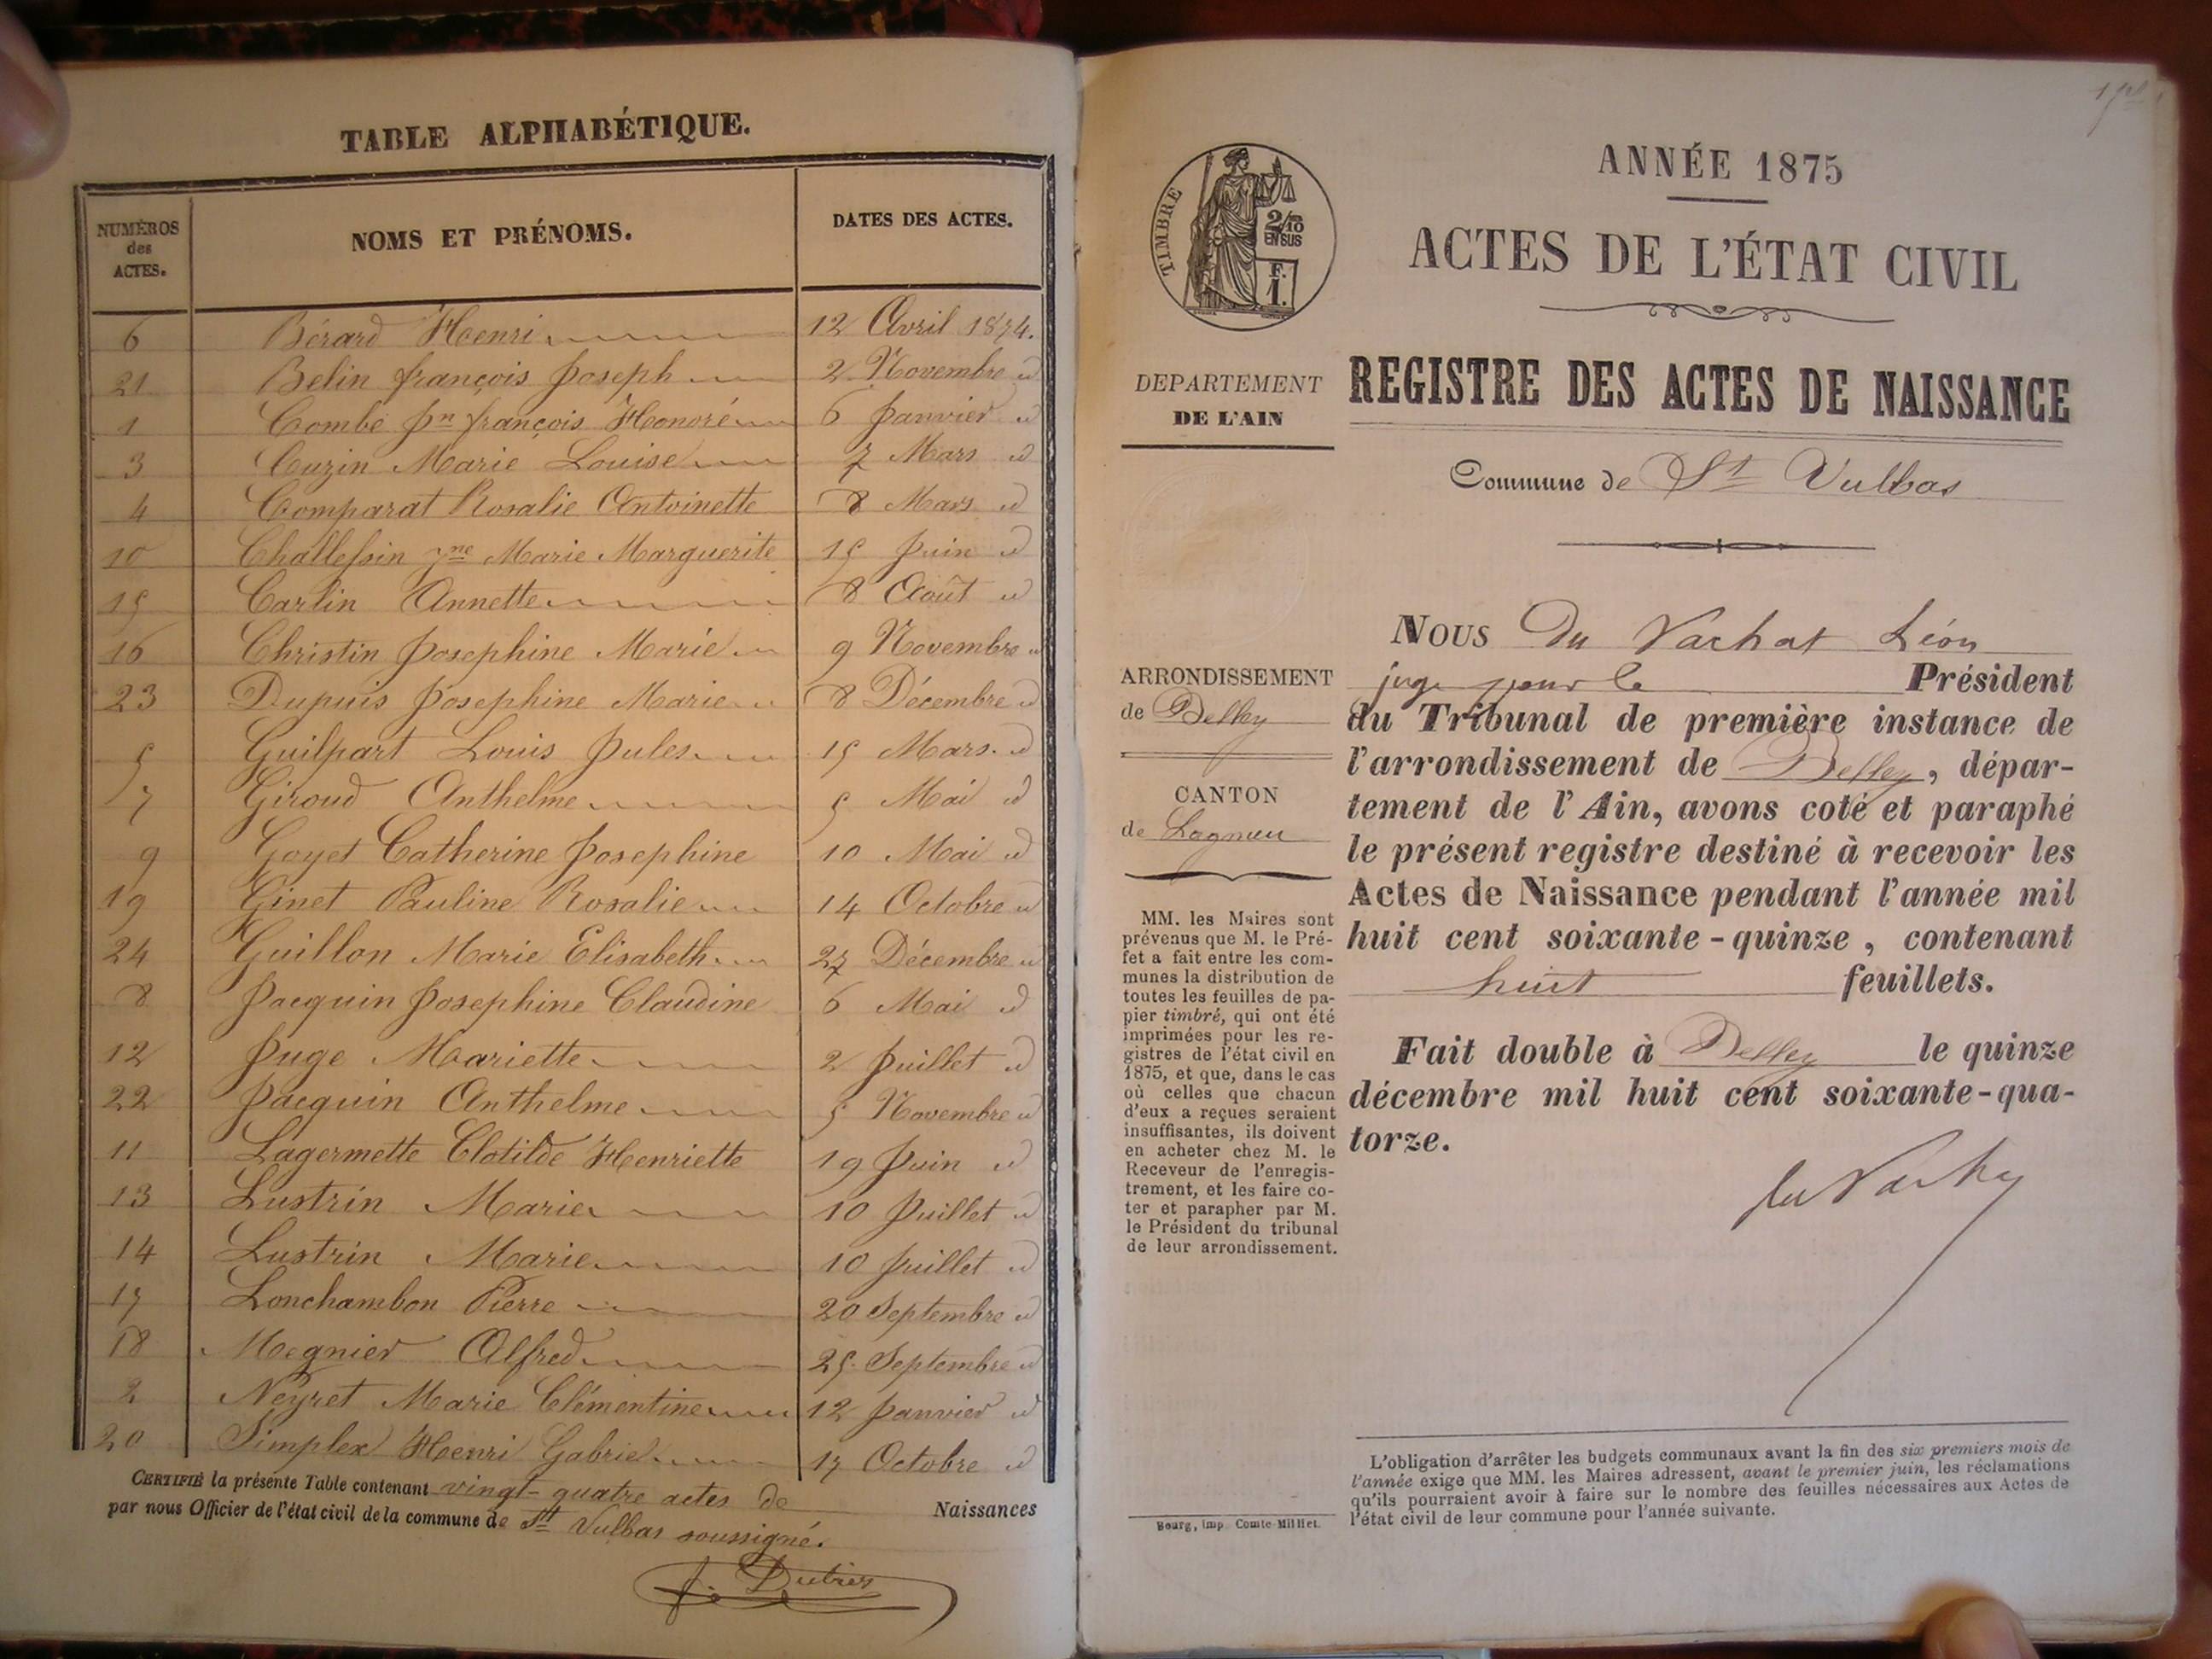 TABLE ALPHABÉTIQUE.
NUMÉROS des ACTES. NOMS ET PRÉNOMS. DATES DES ACTES.
6 Bérard Henri 12 Avril 1874.
21 Belin françois Joseph 2 Novembre id
1 Combe Jn françois Honoré 6 Janvier id
3 Cuzin Marie Louise 7 Mars id
4 Comparat Rosalie Antoinette 8 Mars id
10 Challessin Marie Marguerite 15 Juin id
15 Carlin Annette 8 Août id
16 Christin Josephine Marie 9 Novembre id
23 Dupuis Josephine Marie 8 Décembre id
5 Guilpart Louis Jules 15 Mars id
7 Giroud Anthelme 5 Mai id
9 Goyet Catherine Josephine 10 Mai id
19 Ginet Pauline Rosalie 14 Octobre id
24 Guillon Marie Elisabeth 27 Décembre id
8 Jacquin Josephine Claudine 6 Mai id
12 Juge Mariette 2 Juillet id
22 Jacquin Anthelme 5 Novembre id
11 Lagermette Clotilde Henriette 19 Juin id
13 Lustrin Marie 10 Juillet id
14 Lustrin Marie 10 Juillet id
17 Lonchambon Pierre 20 Septembre id
18 Megnier Alfred 25 Septembre id
2 Neyret Marie Clémentine 12 Janvier id
20 Simplex Henri Gabriel 17 Octobre id
CERTIFIÉ la présente Table contenant vingt-quatre actes de Naissances
par nous Officier de l'état civil de la commune de St Vulbas soussigné.
ANNÉE 1875
TIMBRE
2/10 EN SUS
F. 1.
ACTES DE L'ÉTAT CIVIL
DEPARTEMENT
DE L'AIN
REGISTRE DES ACTES DE NAISSANCE
Commune de St Vulbas
ARRONDISSEMENT
de Belley
CANTON
de Lagnieu
MM. les Maires sont
prévenus que M. le Pré-
fet a fait entre les com-
munes la distribution de
toutes les feuilles de pa-
pier timbré, qui ont été
imprimées pour les re-
gistres de l'état civil en
1875, et que, dans le cas
où celles que chacun
d'eux a reçues seraient
insuffisantes, ils doivent
en acheter chez M. le
Receveur de l'enregis-
trement, et les faire co-
ter et parapher par M.
le Président du tribunal
de leur arrondissement.
NOUS Du Vachat Léon
juge pour le Président
du Tribunal de première instance de
l'arrondissement de Belley, dépar-
tement de l'Ain, avons coté et paraphé
le présent registre destiné à recevoir les
Actes de Naissance pendant l'année mil
huit cent soixante-quinze, contenant
huit feuillets.
Fait double à Belley le quinze
décembre mil huit cent soixante-qua-
torze.
L'obligation d'arrêter les budgets communaux avant la fin des six premiers mois de
l'année exige que MM. les Maires adressent, avant le premier juin, les réclamations
qu'ils pourraient avoir à faire sur le nombre des feuilles nécessaires aux Actes de
l'état civil de leur commune pour l'année suivante.
Bourg, imp. Comte-Milliet.